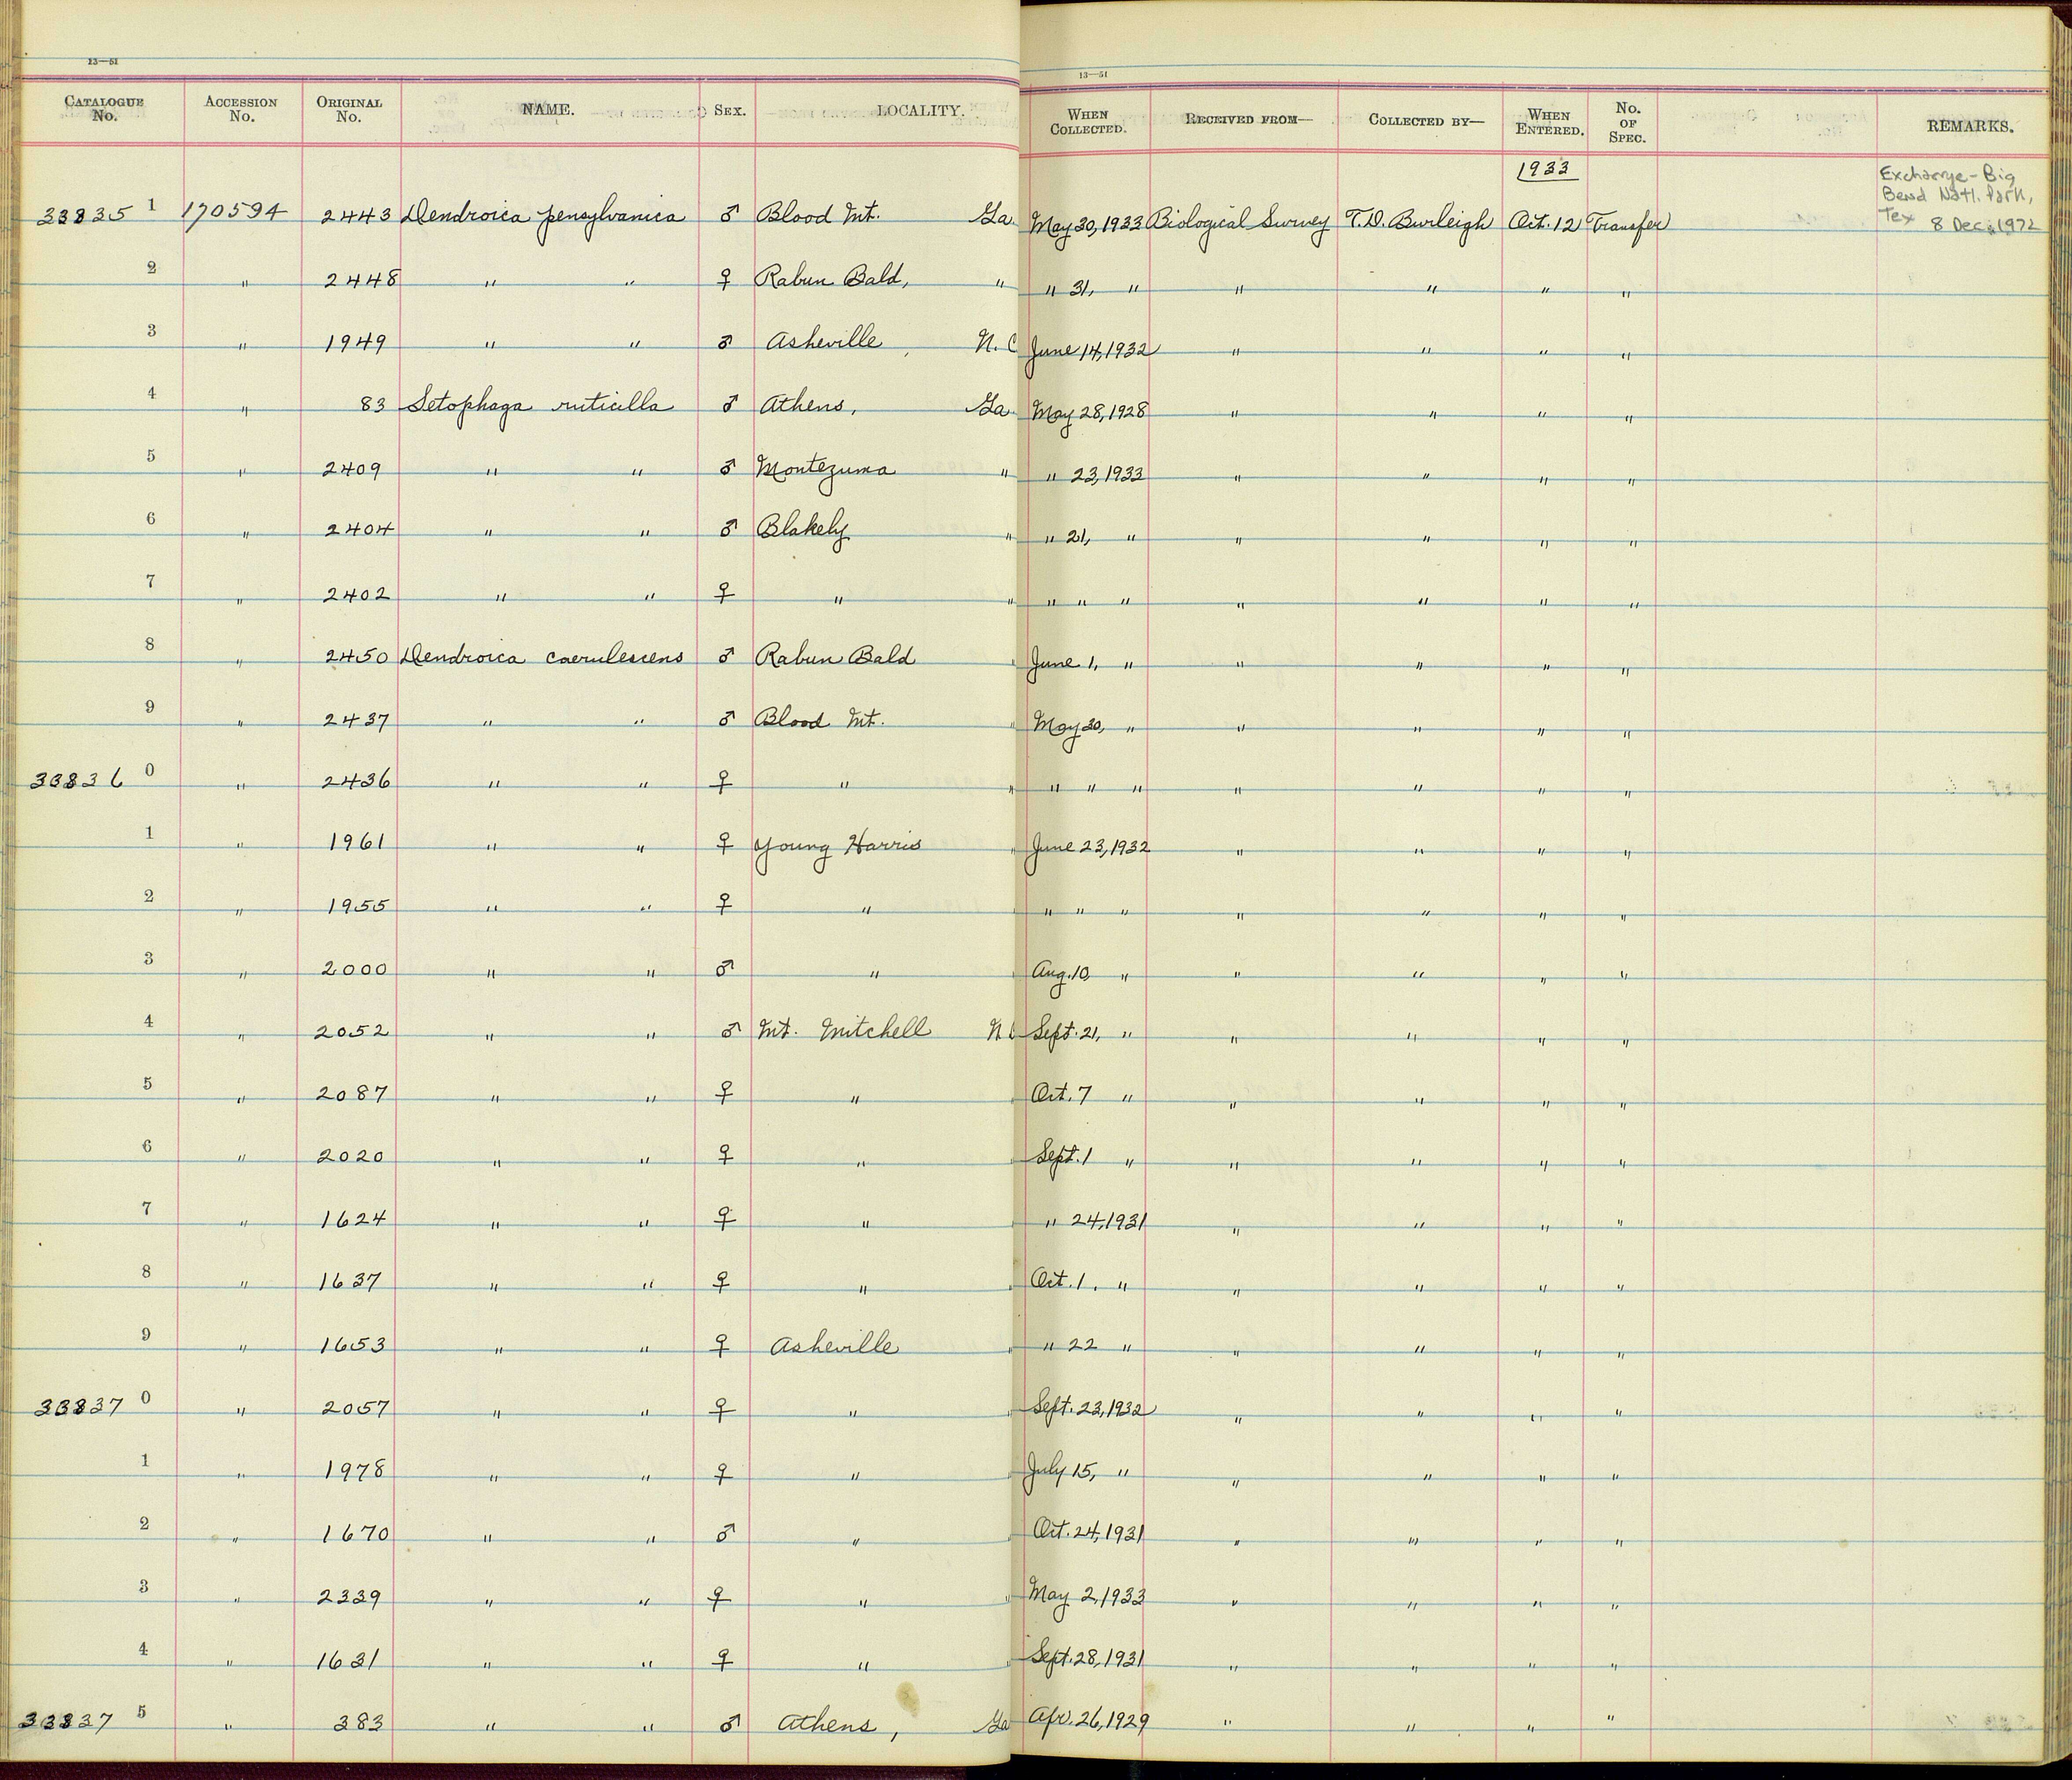 13—51
13—51
CATALOGUE No. ACCESSION No. ORIGINAL No. NAME. SEX. LOCALITY. WHEN COLLECTED. RECEIVED FROM— COLLECTED BY— WHEN ENTERED. No. OF SPEC. REMARKS.
1933
Exchange - Big
Bend Natl. Park,
Tex 8 Dec. 1972
33835 1 170594 2443 Dendroica pensylvanica ♂ Blood Mt. Ga. May 30, 1933 Biological Survey T.D. Burleigh Oct. 12 Transfer
2 " 2448 " " ♀ Rabun Bald, " " 31, " " " " "
3 " 1949 " " ♂ Asheville, N.C June 14, 1932 " " " "
4 " 83 Setophaga ruticilla ♂ Athens, Ga. May 28, 1928 " " " "
5 " 2409 " " ♂ Montezuma " " 23, 1933 " " " "
6 " 2404 " " ♂ Blakely " " 21, " " " " "
7 " 2402 " " ♀ " " " " " " " " "
8 " 2450 Dendroica caerulescens ♂ Rabun Bald " June 1, " " " " "
9 " 2437 " " ♂ Blood Mt. " May 30, " " " " "
33836 0 " 2436 " " ♀ " " " " " " " " "
1 " 1961 " " ♀ Young Harris " June 23, 1932 " " " "
2 " 1955 " " ♀ " " " " " " " " "
3 " 2000 " " ♂ " " Aug. 10, " " " " "
4 " 2052 " " ♂ Mt. Mitchell N.C Sept. 21, " " " " "
5 " 2087 " " ♀ " " Oct. 7 " " " " "
6 " 2020 " " ♀ " " Sept. 1 " " " " "
7 " 1624 " " ♀ " " " 24, 1931 " " " "
8 " 1637 " " ♀ " " Oct. 1, " " " " "
9 " 1653 " " ♀ Asheville " " 22 " " " " "
33837 0 " 2057 " " ♀ " " Sept. 23, 1932 " " " "
1 " 1978 " " ♀ " " July 15, " " " " "
2 " 1670 " " ♂ " " Oct. 24, 1931 " " " "
3 " 2339 " " ♀ " " May 2, 1933 " " " "
4 " 1631 " " ♀ " " Sept. 28, 1931 " " " "
33837 5 " 383 " " ♂ Athens, Ga Apr. 26, 1929 " " " "